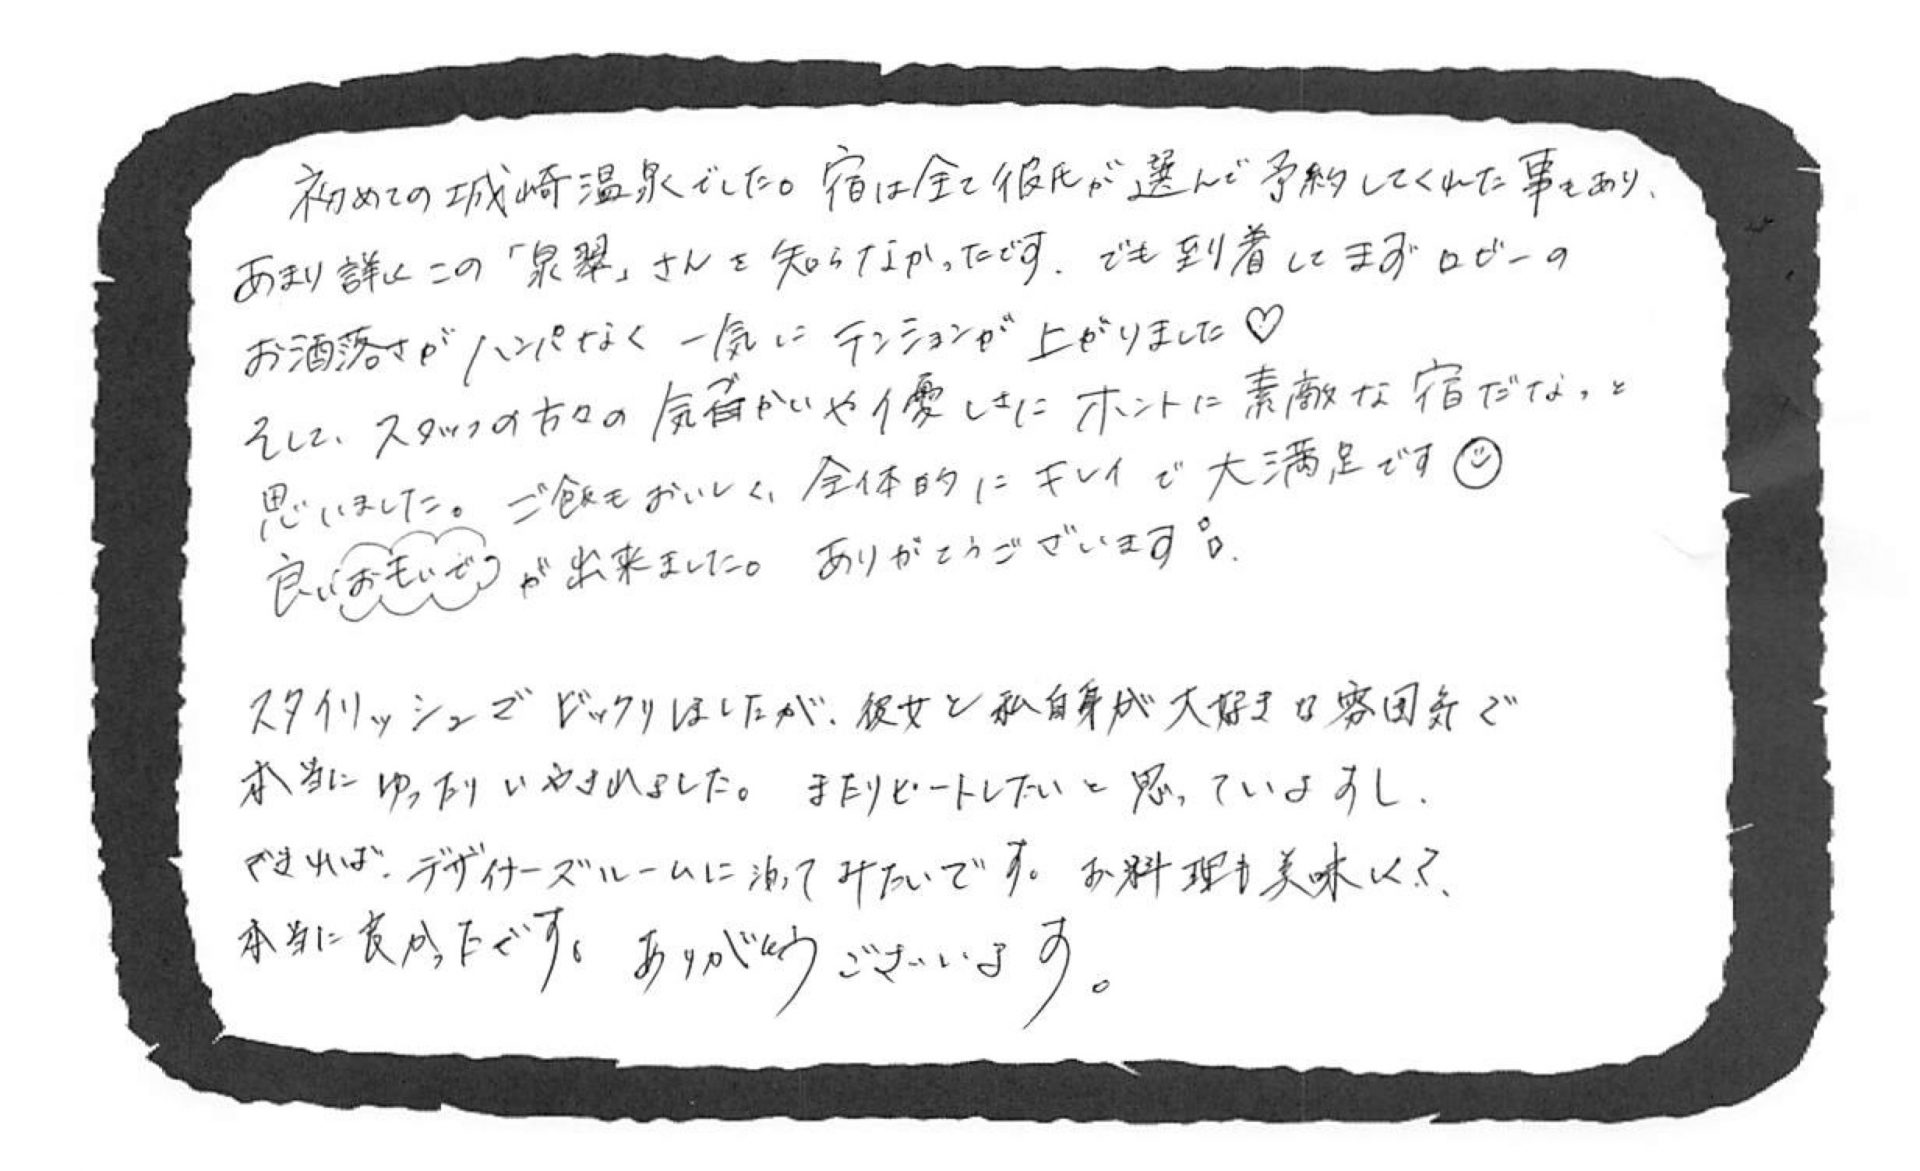 初めての城崎温泉でした。宿は全て彼氏が選んで予約してくれた事もあり、
あまり詳しくこの「泉翠」さんを知らなかったです。でも到着してまずロビーの
お洒落さがハンパなく一気にテンションが上がりました♡
そして、スタッフの方々の気づかいや優しさにホントに素敵な宿だなっと
思いました。ご飯もおいしく、全体的にキレイで大満足です☺
良いおもいでが出来ました。ありがとうございます。
スタイリッシュでビックリしましたが、彼女と私自身が大好きな雰囲気で
本当にゆったりいやされました。またリピートしたいと思っていますし、
できれば、デザイナーズルームに泊ってみたいです。お料理も美味しくて、
本当に良かったです。ありがとうございます。